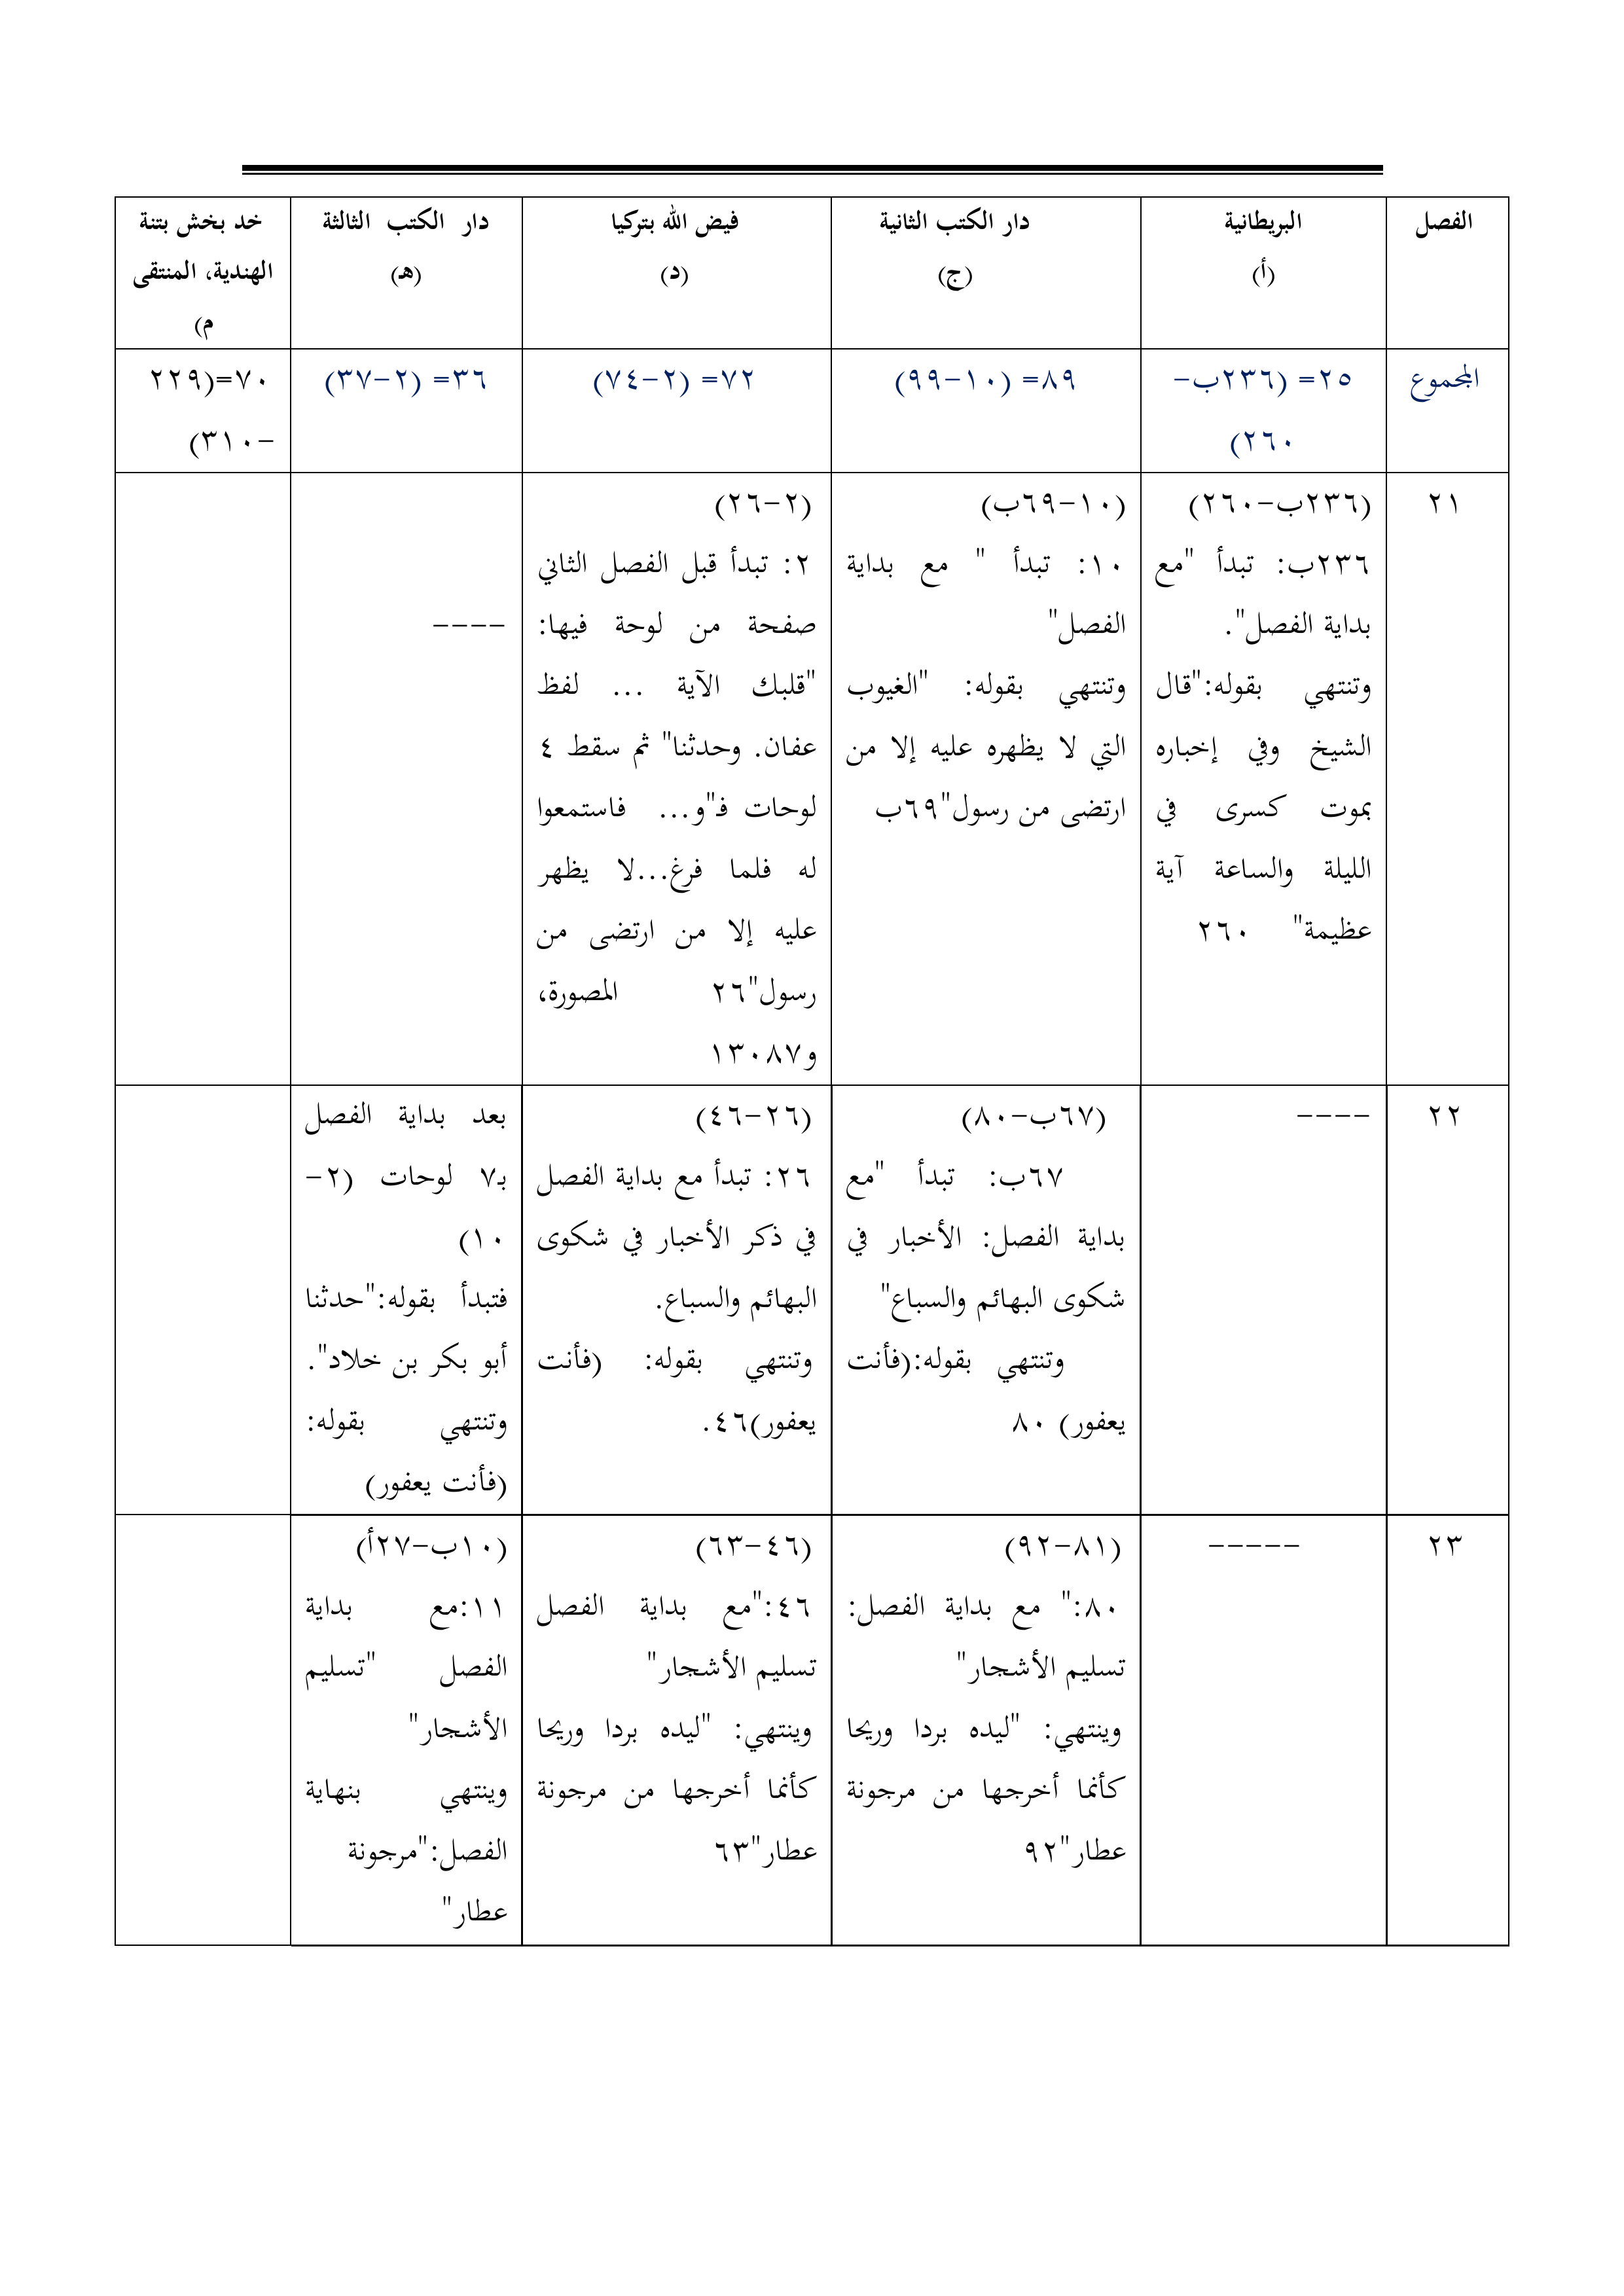 الفصل
البريطانية
(أ)
دار الكتب الثانية
(ج)
فيض الله بتركيا
(د)
دار الكتب الثالثة
(هـ)
خد بخش بتنة
الهندية، المنتقى
م)
المجموع
٢٥= (٢٣٦ب-
٢٦٠)
٨٩= (١٠-٩٩)
٧٢= (٢-٧٤)
٣٦= (٢-٣٧)
٧٠=(٢٢٩
-٣١٠)
٢١
(٢٣٦ب-٢٦٠)
٢٣٦ب: تبدأ "مع
بداية الفصل".
وتنتهي بقوله:"قال
الشيخ وفي إخباره
بموت كسرى في
الليلة والساعة آية
عظيمة" ٢٦٠
(١٠-٦٩ب)
١٠: تبدأ " مع بداية
الفصل"
وتنتهي بقوله: "الغيوب
التي لا يظهره عليه إلا من
ارتضى من رسول"٦٩ب
(٢-٢٦)
٢: تبدأ قبل الفصل الثاني
صفحة من لوحة فيها:
"قلبك الآية ... لفظ
عفان. وحدثنا" ثم سقط ٤
لوحات فـ"و... فاستمعوا
له فلما فرغ...لا يظهر
عليه إلا من ارتضى من
رسول"٢٦ المصورة،
و١٣٠٨٧
----
٢٢
----
(٦٧ب-٨٠)
٦٧ب: تبدأ "مع
بداية الفصل: الأخبار في
شكوى البهائم والسباع"
وتنتهي بقوله:(فأنت
يعفور) ٨٠
(٢٦-٤٦)
٢٦: تبدأ مع بداية الفصل
في ذكر الأخبار في شكوى
البهائم والسباع.
وتنتهي بقوله: (فأنت
يعفور)٤٦.
بعد بداية الفصل
بـ٧ لوحات (٢-
١٠)
فتبدأ بقوله:"حدثنا
أبو بكر بن خلاد".
وتنتهي بقوله:
(فأنت يعفور)
٢٣
-----
(٨١-٩٢)
٨٠:" مع بداية الفصل:
تسليم الأشجار"
وينتهي: "ليده بردا وريحا
كأنما أخرجها من مرجونة
عطار"٩٢
(٤٦-٦٣)
٤٦:"مع بداية الفصل
تسليم الأشجار"
وينتهي: "ليده بردا وريحا
كأنما أخرجها من مرجونة
عطار"٦٣
(١٠ب-٢٧أ)
١١:مع بداية
الفصل "تسليم
الأشجار"
وينتهي بنهاية
الفصل:"مرجونة
عطار"